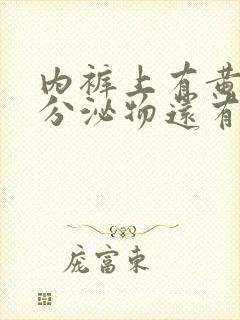 内裤上有黄
分泌物还有
庞富東